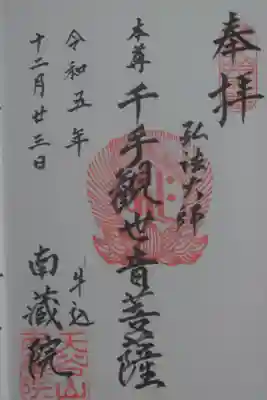 奉拝
弘法大師
本尊 千手観世音菩薩
令和五年
十二月廿三日
牛込
南蔵院